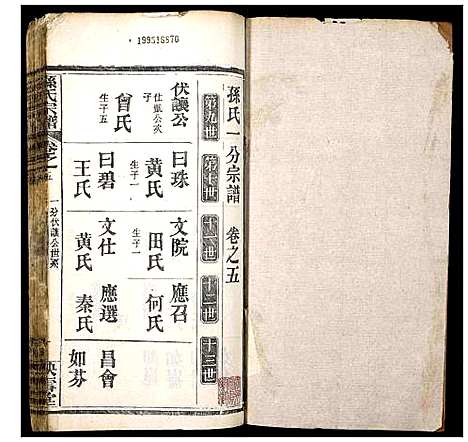 199516970
孫氏一分宗譜 卷之五
第九世 第十世 十一世 十二世 十三世
伏讓公
仕甄公次
子
曾氏
生子五
曰珠
黃氏
生子一
曰碧
王氏
文院
田氏
生子一
文仕
黃氏
應召
何氏
應選
秦氏
昌會
如芬
孫氏宗譜 卷之五
一分伏讓公世系